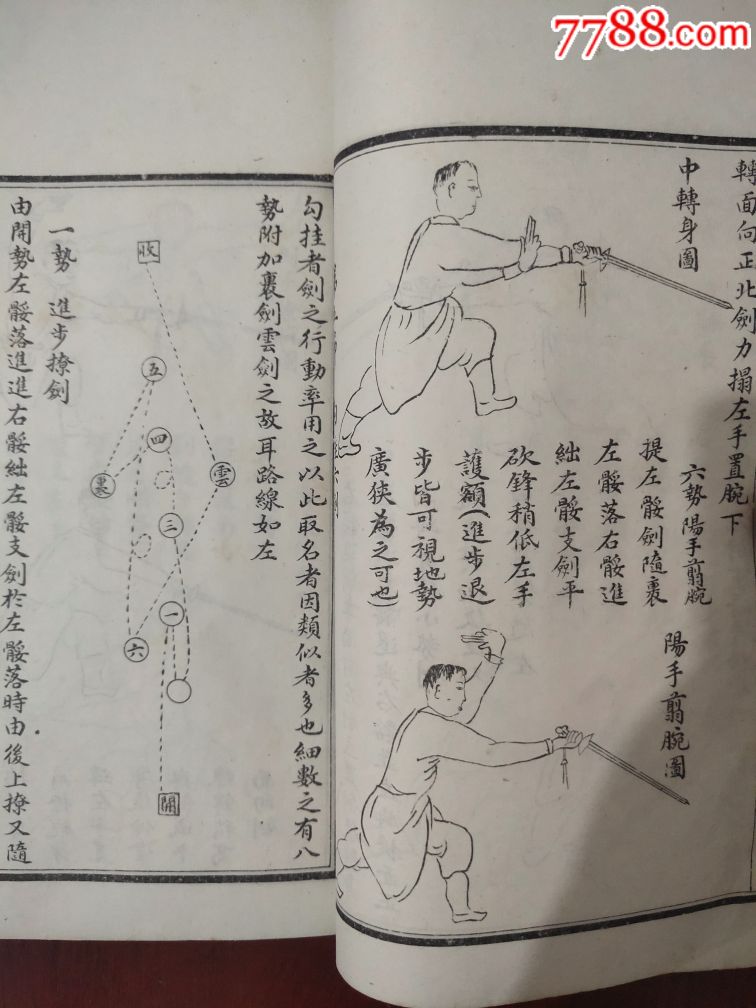 7788.com
轉面向正北劍力搨左手置腕下
中轉身圖
六勢陽手翦腕
提左骽劍隨裹
左骽落右骽進
絀左骽支劍平
砍鋒稍低左手
護額(進步退
步皆可視地勢
廣狹為之可也)
陽手翦腕圖
勾挂者劍之行動率用之以此取名者因類似者多也細數之有八
勢附加裹劍雲劍之故耳路線如左
收
五
四
裏
雲
三
一
六
開
一勢 進步撩劍
由開勢左骽落進進右骽絀左骽支劍於左骽落時由後上撩又隨